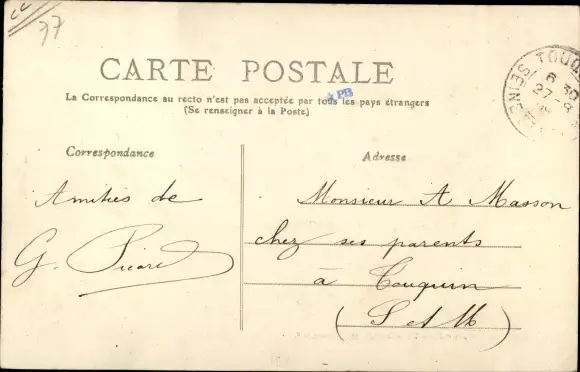 77
CARTE POSTALE
La Correspondance au recto n'est pas acceptée par tous les pays étrangers
PB
(Se renseigner à la Poste)
TOUQ
6 30
27-8
SEINE
Correspondance
Adresse
Amitiés de
G. Picard
Monsieur A Masson
chez ses parents
à Touquin
(S et M)